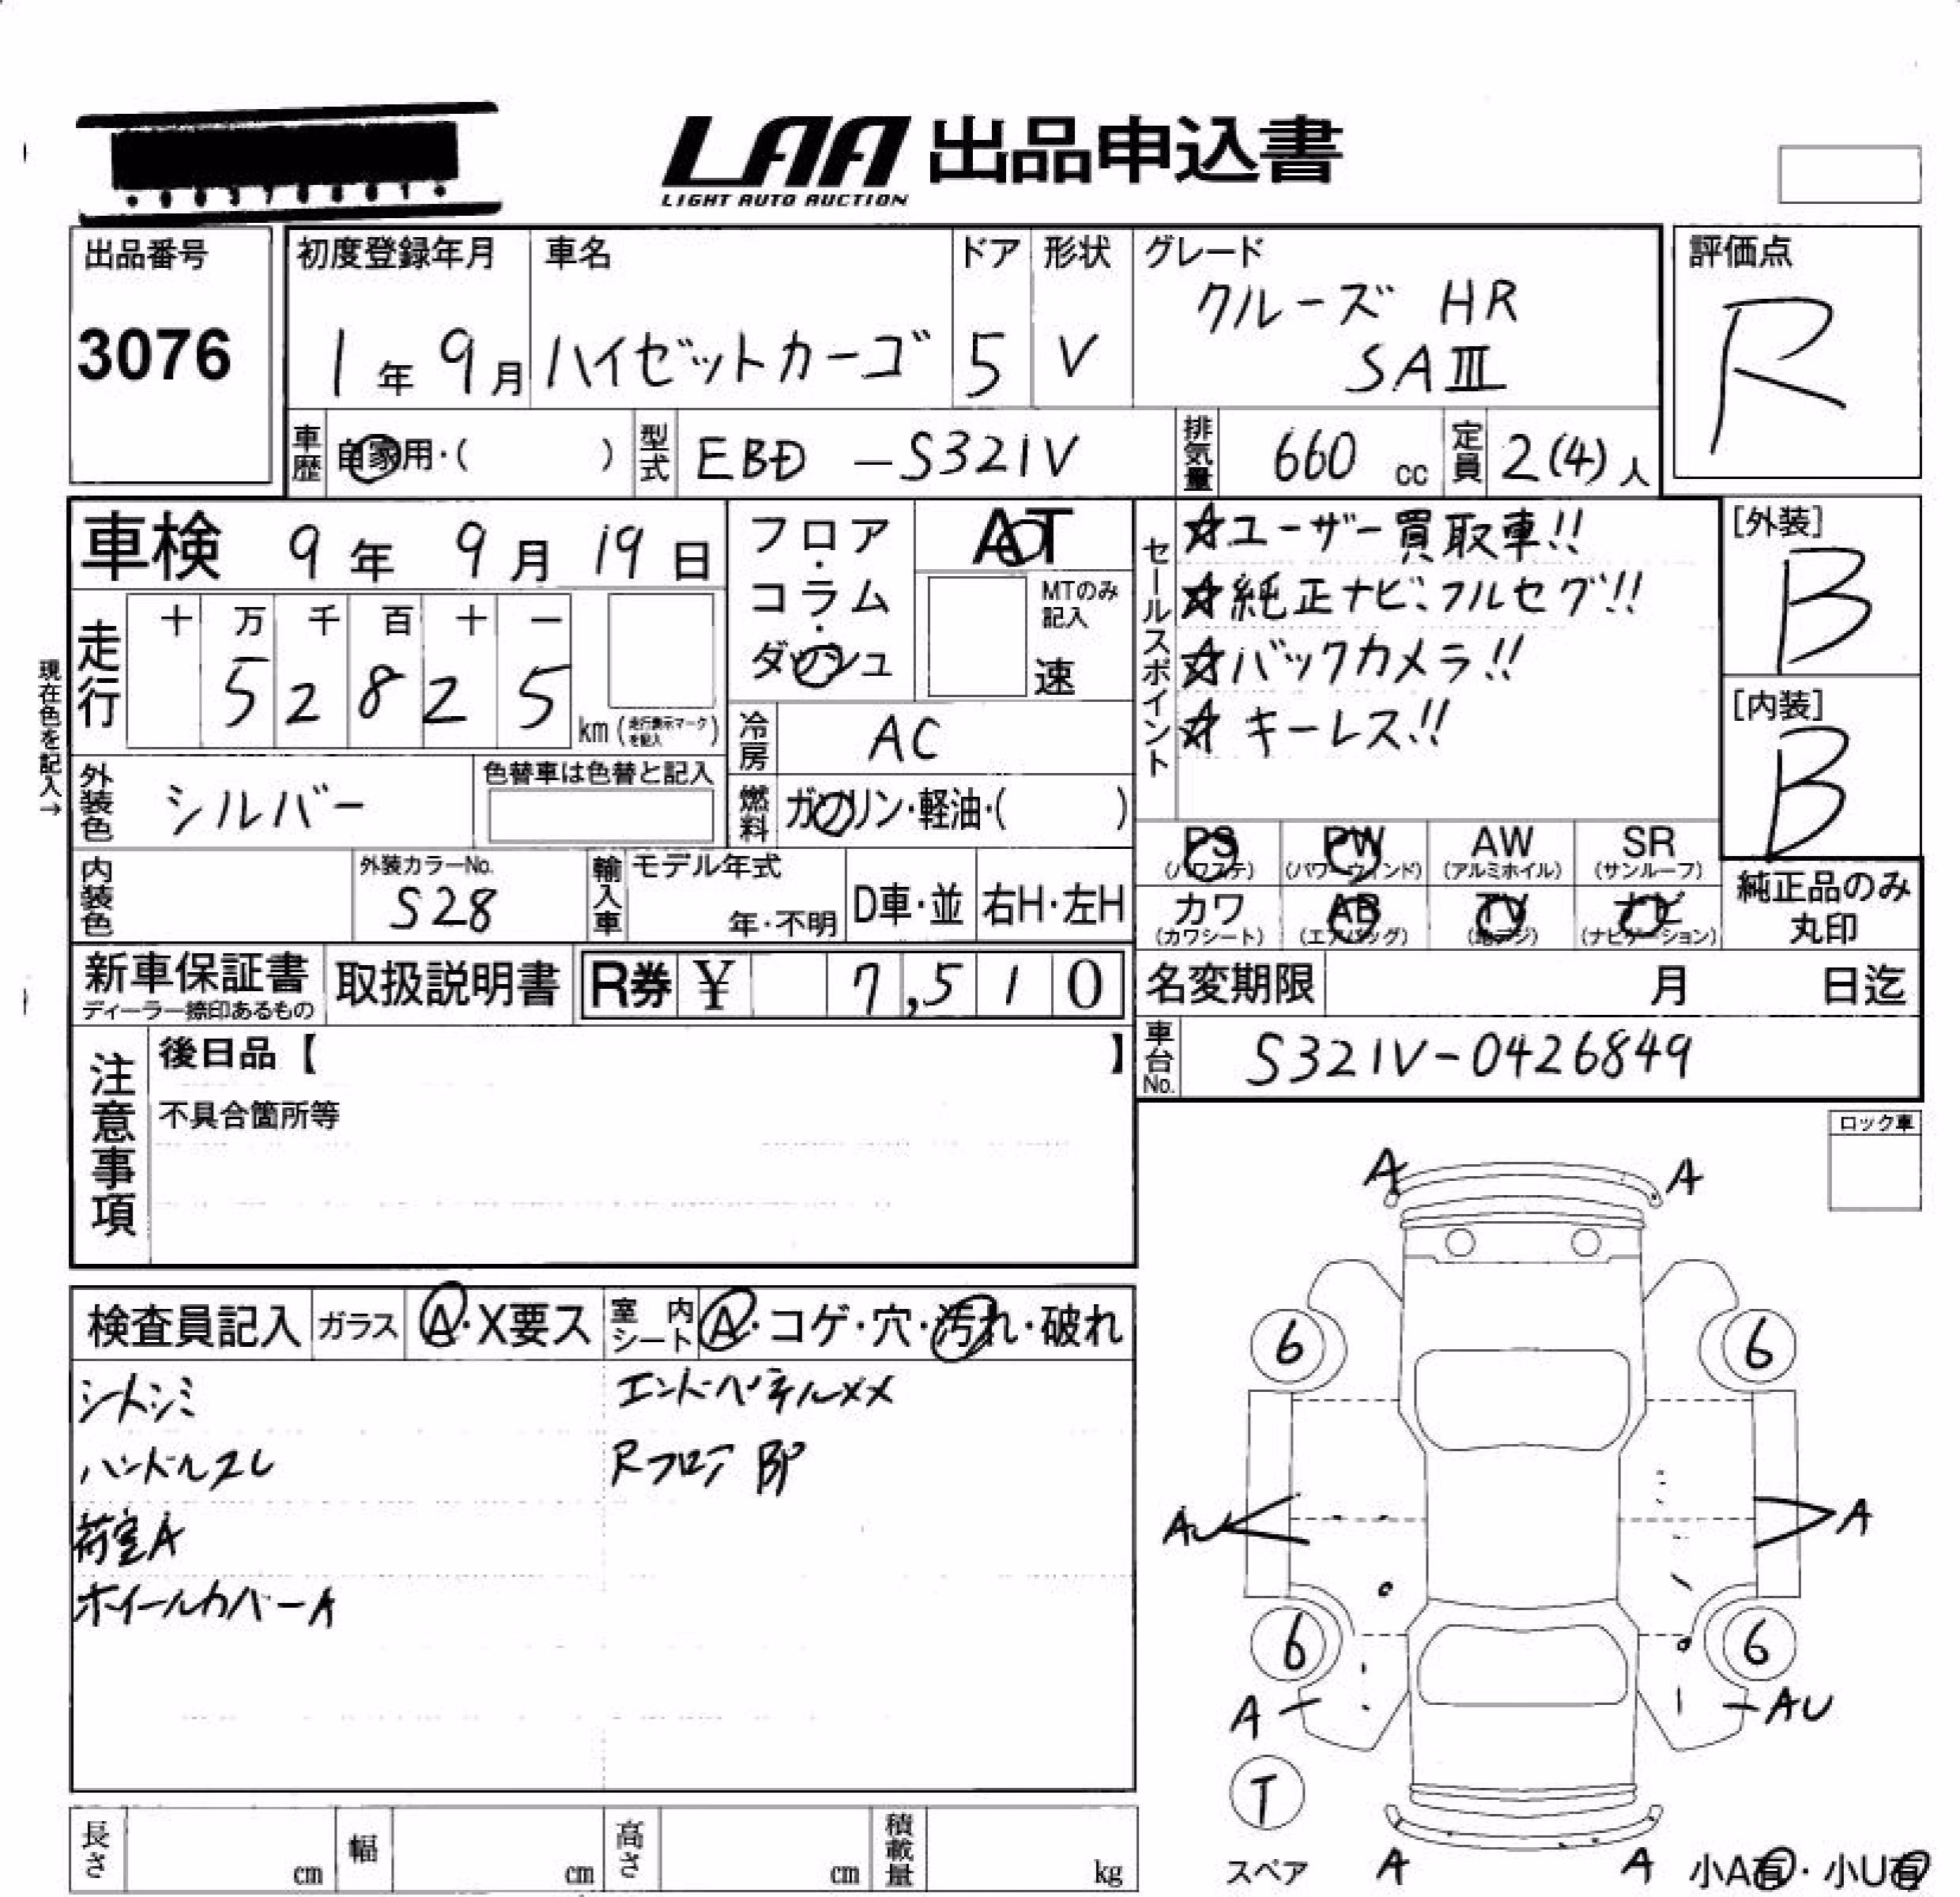 LAA 出品申込書
LIGHT AUTO AUCTION
出品番号
3076
初度登録年月
1年9月
車名
ハイゼットカーゴ
ドア
5
形状
V
グレード
クルーズ HR
SAⅢ
評価点
R
車歴
自家用・( )
型式
EBD-S321V
排気量
660 cc
定員
2(4)人
車検 9年 9月 19日
現在色を記入→
走行
十 万 千 百 十 一
5 2 8 2 5
km (走行表示マークを記入)
フロア・コラム・ダッシュ
AT
MTのみ記入
速
冷房
AC
燃料
ガソリン・軽油・( )
外装色
シルバー
色替車は色替と記入
内装色
外装カラーNo.
S28
輸入車
モデル年式
年・不明
D車・並
右H・左H
セールスポイント
☆ユーザー買取車!!
☆純正ナビ、フルセグ!!
☆バックカメラ!!
☆キーレス!!
[外装]
B
[内装]
B
PS (パワステ)
PW (パワーウィンド)
AW (アルミホイル)
SR (サンルーフ)
カワ (カワシート)
AB (エアバッグ)
TV (地デジ)
ナビ (ナビゲーション)
純正品のみ丸印
新車保証書
ディーラー捺印あるもの
取扱説明書
R券 ¥ 7,510
名変期限 月 日迄
車台No.
S321V-0426849
注意事項
後日品【 】
不具合箇所等
ロック車
検査員記入
ガラス
A・X要ス
室内シート
A・コゲ・穴・汚れ・破れ
シートシミ
ハンドルスレ
荷室A
ホイールカバーA
エンドパネルXX
Rフロア BP
A A
6 6
AU A
6 6
A AU
T
スペア
A A
小A有・小U有
長さ cm
幅 cm
高さ cm
積載量 kg